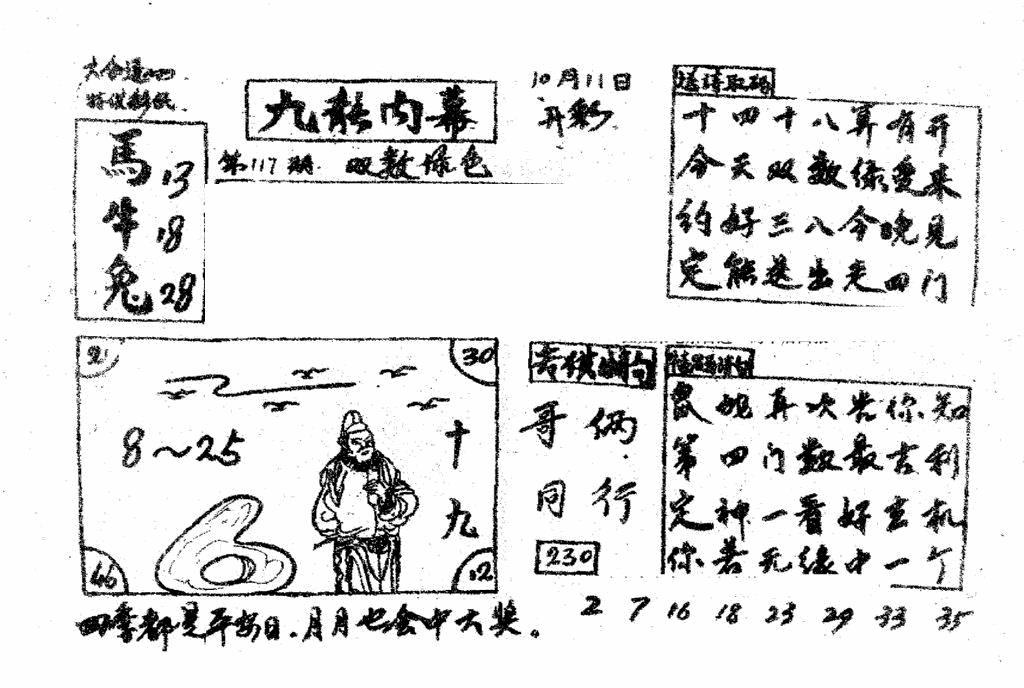 九龍内幕
第117期 双数绿色
10月11日
开彩
馬 13
牛 18
兔 28
十四十八算有开
今天双数绿爱来
约好三八今晚见
定能送出来四门
21
30
8~25
十九
46
12
四季都是平安日.月月也会中大奖。
哥俩
同行
230
鼠蛇再次告你知
第四门数最吉利
定神一看好玄机
你若无缘中一个
2 7 16 18 23 29 33 35